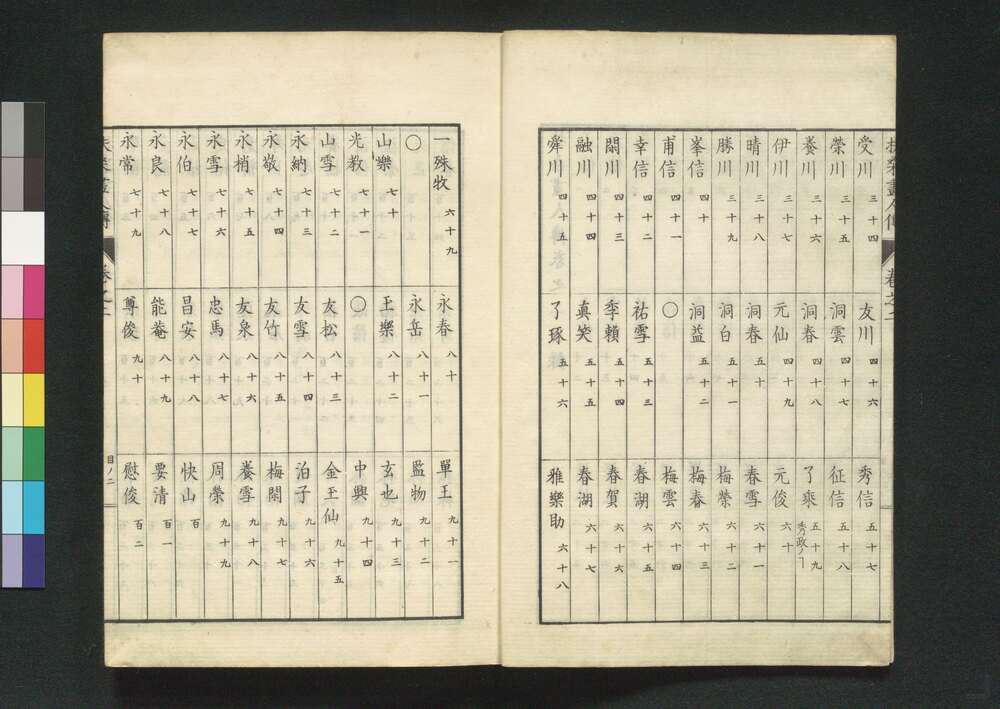 受川 三十四
榮川 三十五
養川 三十六
伊川 三十七
晴川 三十八
勝川 三十九
峯信 四十
甫信 四十一
幸信 四十二
閑川 四十三
融川 四十四
舜川 四十五
友川 四十六
洞雲 四十七
洞春 四十八
元仙 四十九
洞春 五十
洞白 五十一
洞益 五十二
〇
祐雪 五十三
季頼 五十四
眞笑 五十五
了琢 五十六
秀信 五十七
征信 五十八
了乘 五十九 秀政ノ
元俊 六十
春雪 六十一
梅榮 六十二
梅春 六十三
梅雲 六十四
春湖 六十五
春賀 六十六
春湖 六十七
雅樂助 六十八
一殊牧 六十九
〇
山樂 七十
光教 七十一
山雪 七十二
永納 七十三
永敬 七十四
永梢 七十五
永雪 七十六
永伯 七十七
永良 七十八
永常 七十九
永春 八十
永岳 八十一
王樂 八十二
〇
友松 八十三
友雪 八十四
友竹 八十五
友泉 八十六
忠馬 八十七
昌安 八十八
能菴 八十九
尊俊 九十
單王 九十一
監物 九十二
玄也 九十三
中興 九十四
金玉仙 九十五
泊子 九十六
梅閑 九十七
養雪 九十八
周榮 九十九
快山 百
要清 百一
慰俊 百二
目ノ二